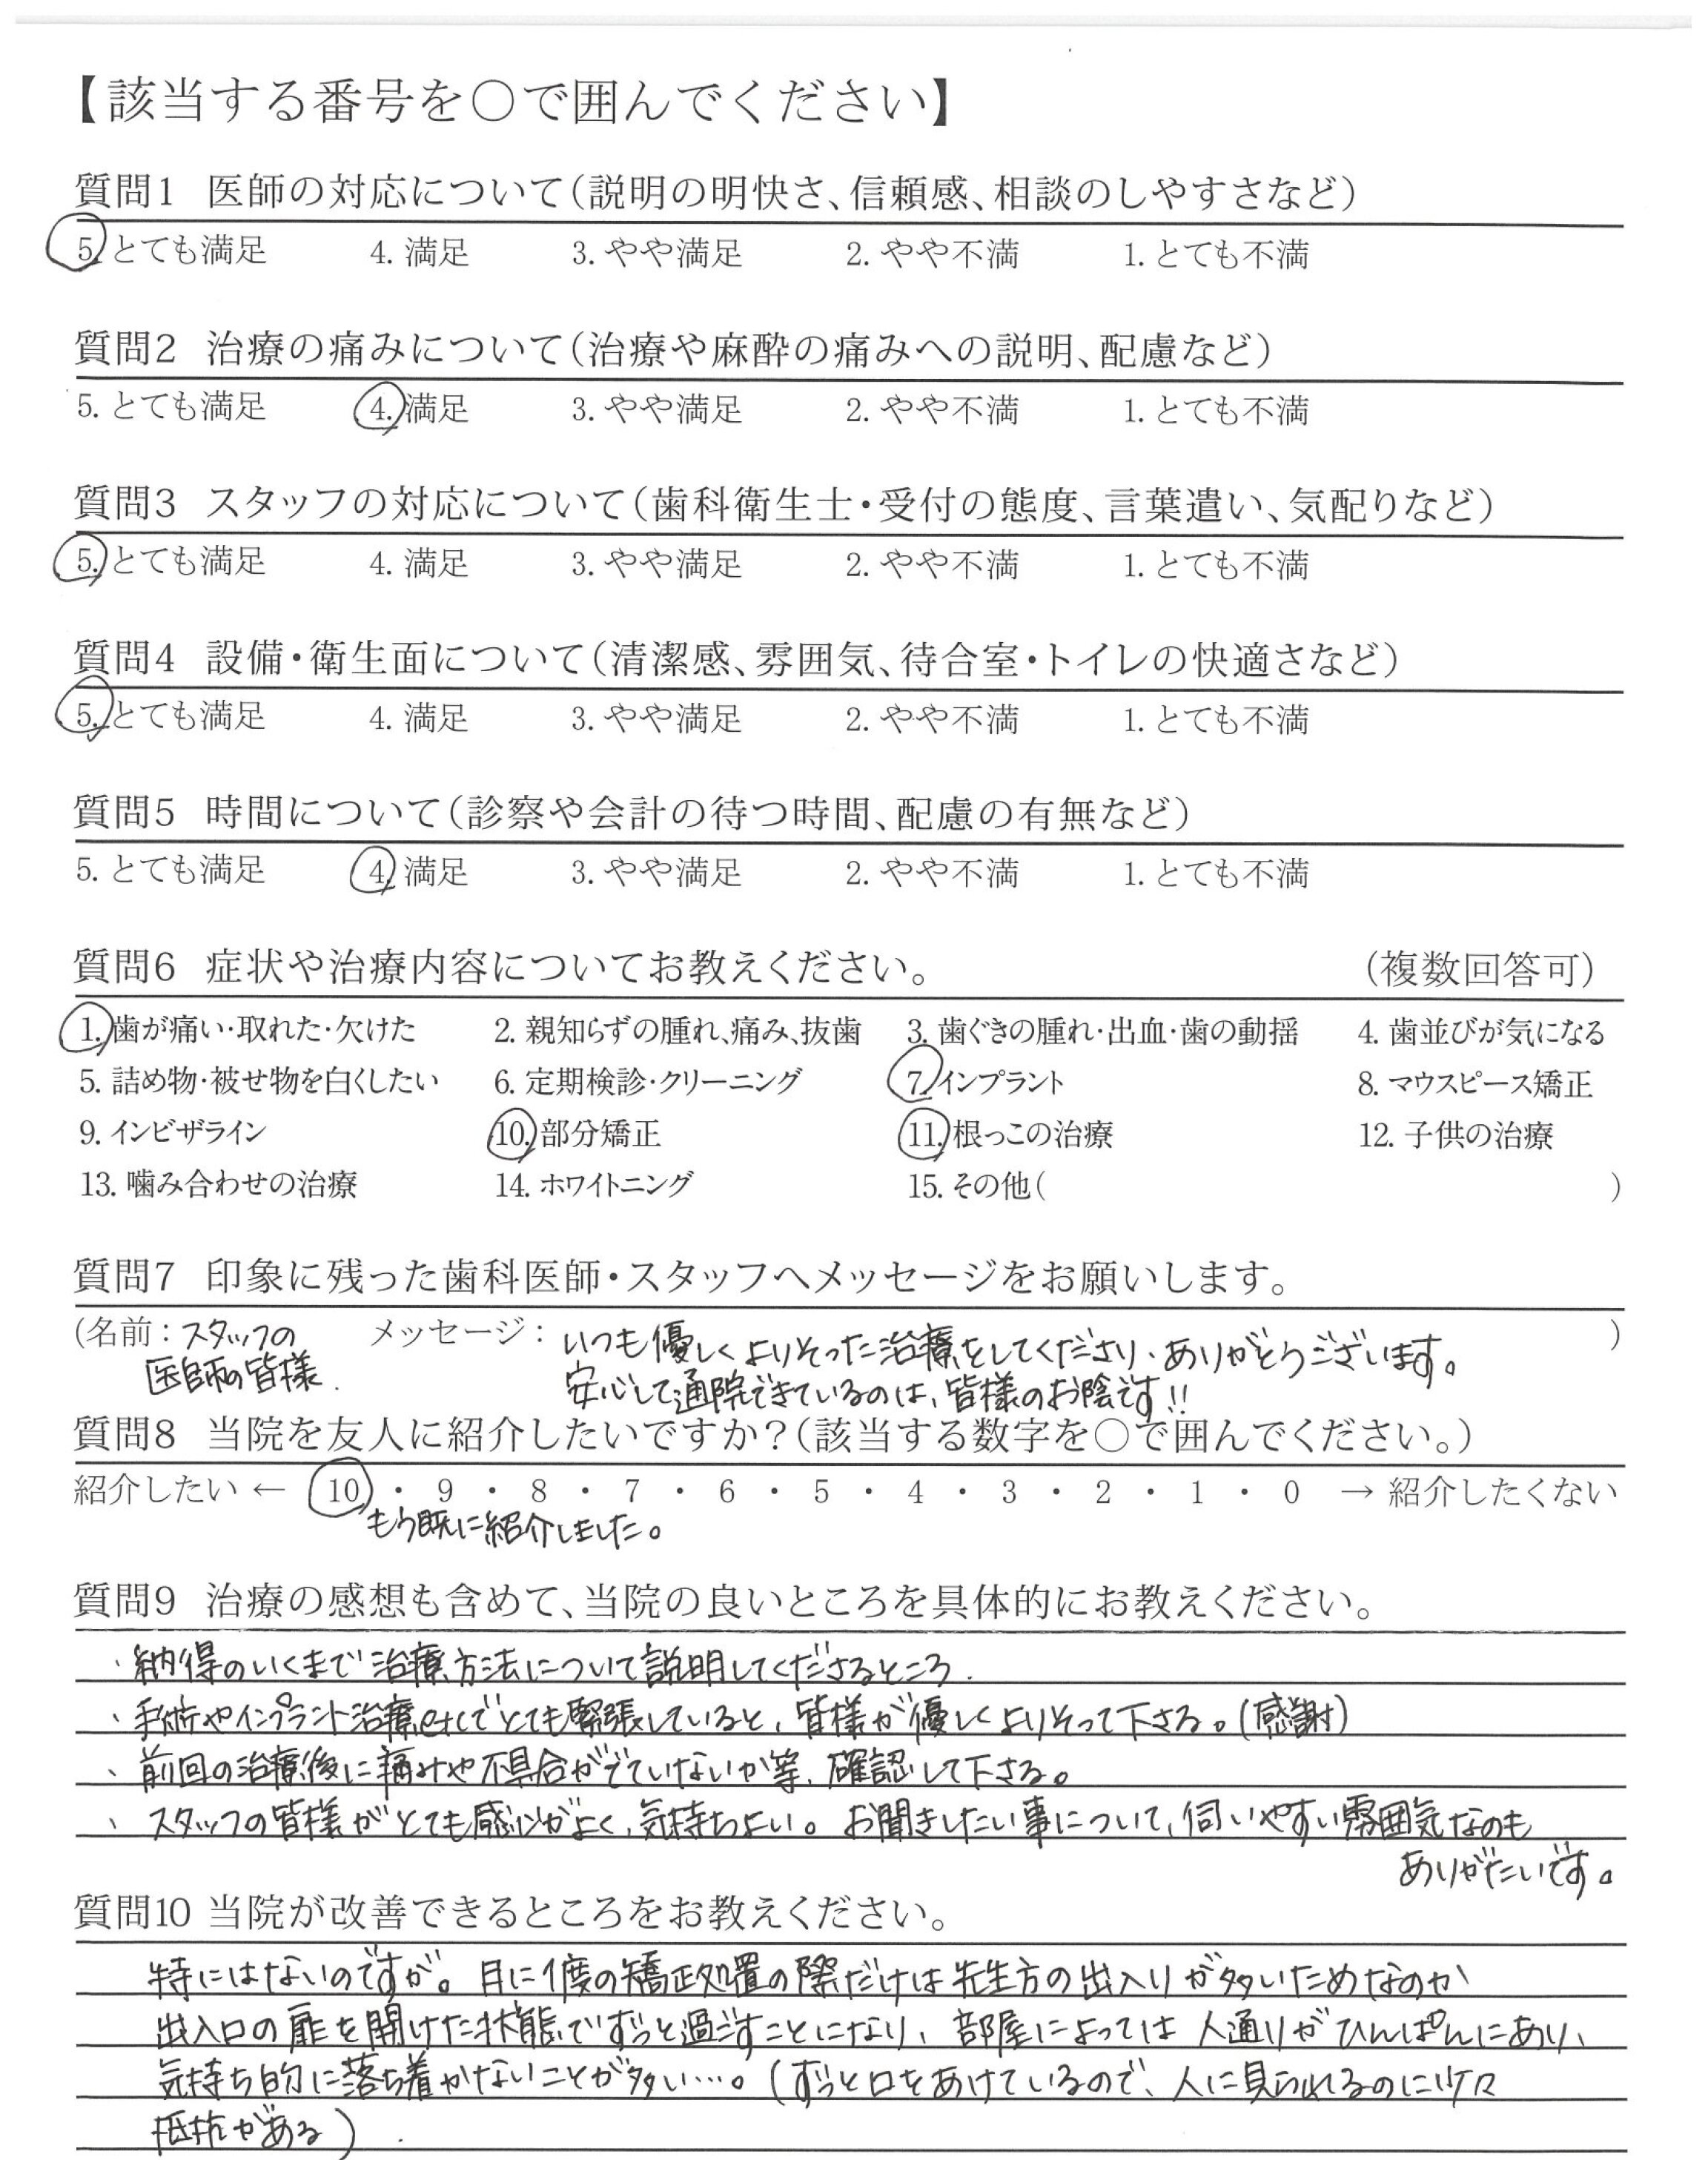 【該当する番号を○で囲んでください】
質問1 医師の対応について(説明の明快さ、信頼感、相談のしやすさなど)
5. とても満足 4. 満足 3. やや満足 2. やや不満 1. とても不満
質問2 治療の痛みについて(治療や麻酔の痛みへの説明、配慮など)
5. とても満足 4. 満足 3. やや満足 2. やや不満 1. とても不満
質問3 スタッフの対応について(歯科衛生士・受付の態度、言葉遣い、気配りなど)
5. とても満足 4. 満足 3. やや満足 2. やや不満 1. とても不満
質問4 設備・衛生面について(清潔感、雰囲気、待合室・トイレの快適さなど)
5. とても満足 4. 満足 3. やや満足 2. やや不満 1. とても不満
質問5 時間について(診察や会計の待つ時間、配慮の有無など)
5. とても満足 4. 満足 3. やや満足 2. やや不満 1. とても不満
質問6 症状や治療内容についてお教えください。 (複数回答可)
1. 歯が痛い・取れた・欠けた 2. 親知らずの腫れ、痛み、抜歯 3. 歯ぐきの腫れ・出血・歯の動揺 4. 歯並びが気になる
5. 詰め物・被せ物を白くしたい 6. 定期検診・クリーニング 7. インプラント 8. マウスピース矯正
9. インビザライン 10. 部分矯正 11. 根っこの治療 12. 子供の治療
13. 噛み合わせの治療 14. ホワイトニング 15. その他( )
質問7 印象に残った歯科医師・スタッフへメッセージをお願いします。
(名前：スタッフの メッセージ：いつも優しくよりそった治療をしてくださり、ありがとうございます。 )
医師の皆様. 安心して通院できているのは、皆様のお陰です!!
質問8 当院を友人に紹介したいですか？(該当する数字を○で囲んでください。)
紹介したい ← 10 ・ 9 ・ 8 ・ 7 ・ 6 ・ 5 ・ 4 ・ 3 ・ 2 ・ 1 ・ 0 → 紹介したくない
もう既に紹介しました。
質問9 治療の感想も含めて、当院の良いところを具体的にお教えください。
・納得のいくまで治療方法について説明してくださるところ.
・手術やインプラント治療etcでとても緊張していると、皆様が優しくよりそって下さる。(感謝)
・前回の治療後に痛みや不具合がでていないか等、確認して下さる。
・スタッフの皆様がとても感じがよく、気持ちよい。お聞きしたい事について、伺いやすい雰囲気なのも
ありがたいです。
質問10 当院が改善できるところをお教えください。
特にはないのですが。月に1度の矯正処置の際だけは先生方の出入りが多いためなのか
出入口の扉を開けた状態でずっと過ごすことになり、部屋によっては人通りがひんぱんにあり、
気持ち的に落ち着かないことが多い…。(ずっと口をあけているので、人に見られるのに少々
抵抗がある).